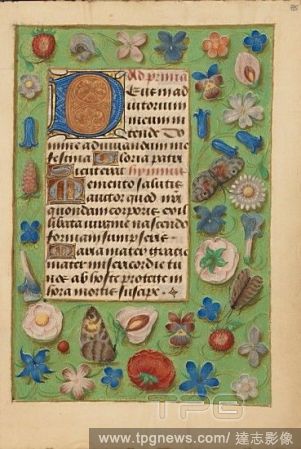 Ad primā
Deus in ad
iutorium
meum in
tende Do
mine ad iuvandum me
festina Gloria patri
Memento salutis
auctor quod nr̄i
quondam corporis ex il
libata virgine nascendo
formam sumpseris
Maria mater gratie
mater misericordie tu
nos ab hoste protege in
hora mortis suscipe
TPG
www.tpgnews.com/ 達志影像